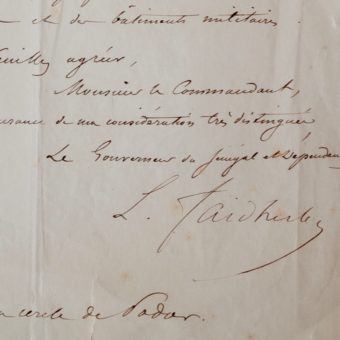 et des bâtiments militaires.
Veuillez agréer,
Monsieur le Commandant,
surance de ma considération très distinguée
Le Gouverneur du Sénégal et Dépendan
L. Faidherbe
cercle de Podor.